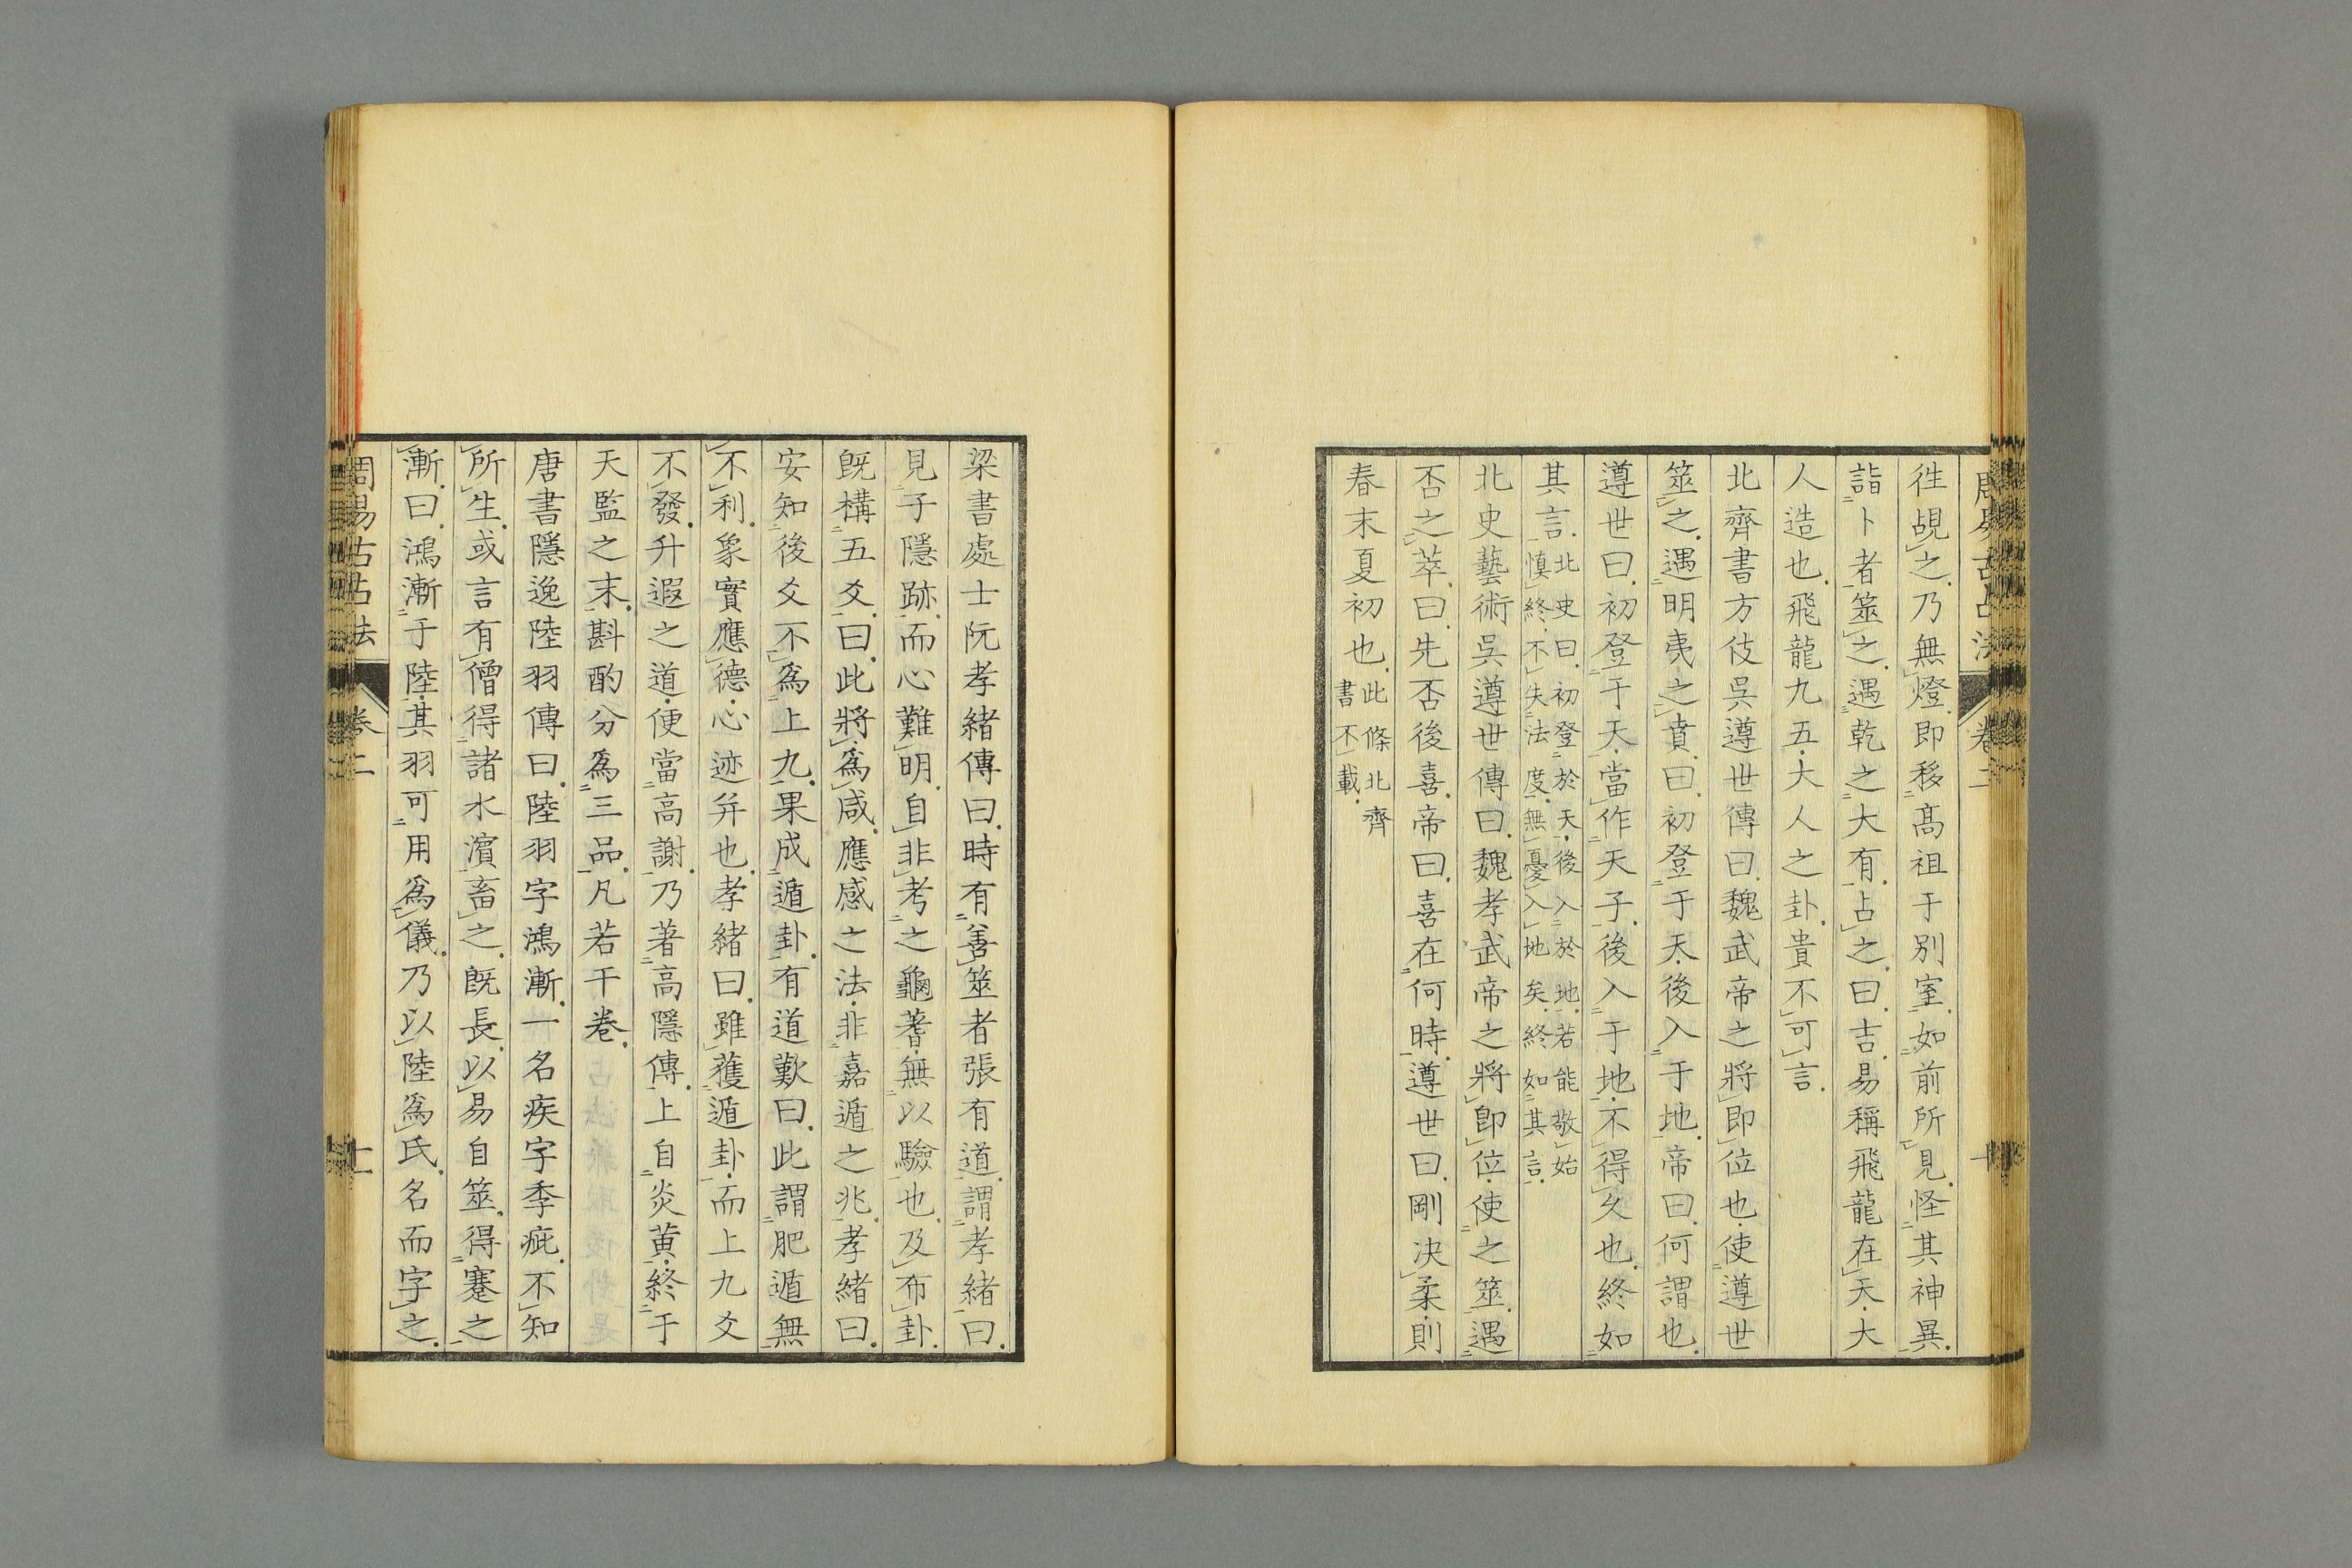 周易古占法 卷二 十
徃覘之乃無燈即移髙祖于別室如前所見怪其神異
詣卜者筮之遇乾之大有占之曰吉易稱飛龍在天大
人造也飛龍九五大人之卦貴不可言
北齊書方伎吳遵世傳曰魏武帝之將即位也使遵世
筮之遇明夷之賁曰初登于天後入于地帝曰何謂也
遵世曰初登于天當作天子後入于地不得久也終如
其言北史曰初登於天後入於地若能敬始
慎終不失法度無憂入地矣終如其言
北史藝術吳遵世傳曰魏孝武帝之將即位使之筮遇
否之萃曰先否後喜帝曰喜在何時遵世曰剛决柔則
春末夏初也此條北齊
書不載
梁書處士阮孝緒傳曰時有善筮者張有道謂孝緒曰
見子隱跡而心難明自非考之龜蓍無以驗也及布卦
既構五爻曰此將爲咸應感之法非嘉遁之兆孝緒曰
安知後爻不爲上九果成遁卦有道歎曰此謂肥遁無
不利象實應德心迹并也孝緒曰雖獲遁卦而上九爻
不發升遐之道便當高謝乃著高隱傳上自炎黄終于
天監之末斟酌分爲三品凡若干卷
唐書隱逸陸羽傳曰陸羽字鴻漸一名疾字季疵不知
所生或言有僧得諸水濱畜之既長以易自筮得蹇之
漸曰鴻漸于陸其羽可用爲儀乃以陸爲氏名而字之
周易古占法 卷二 十一